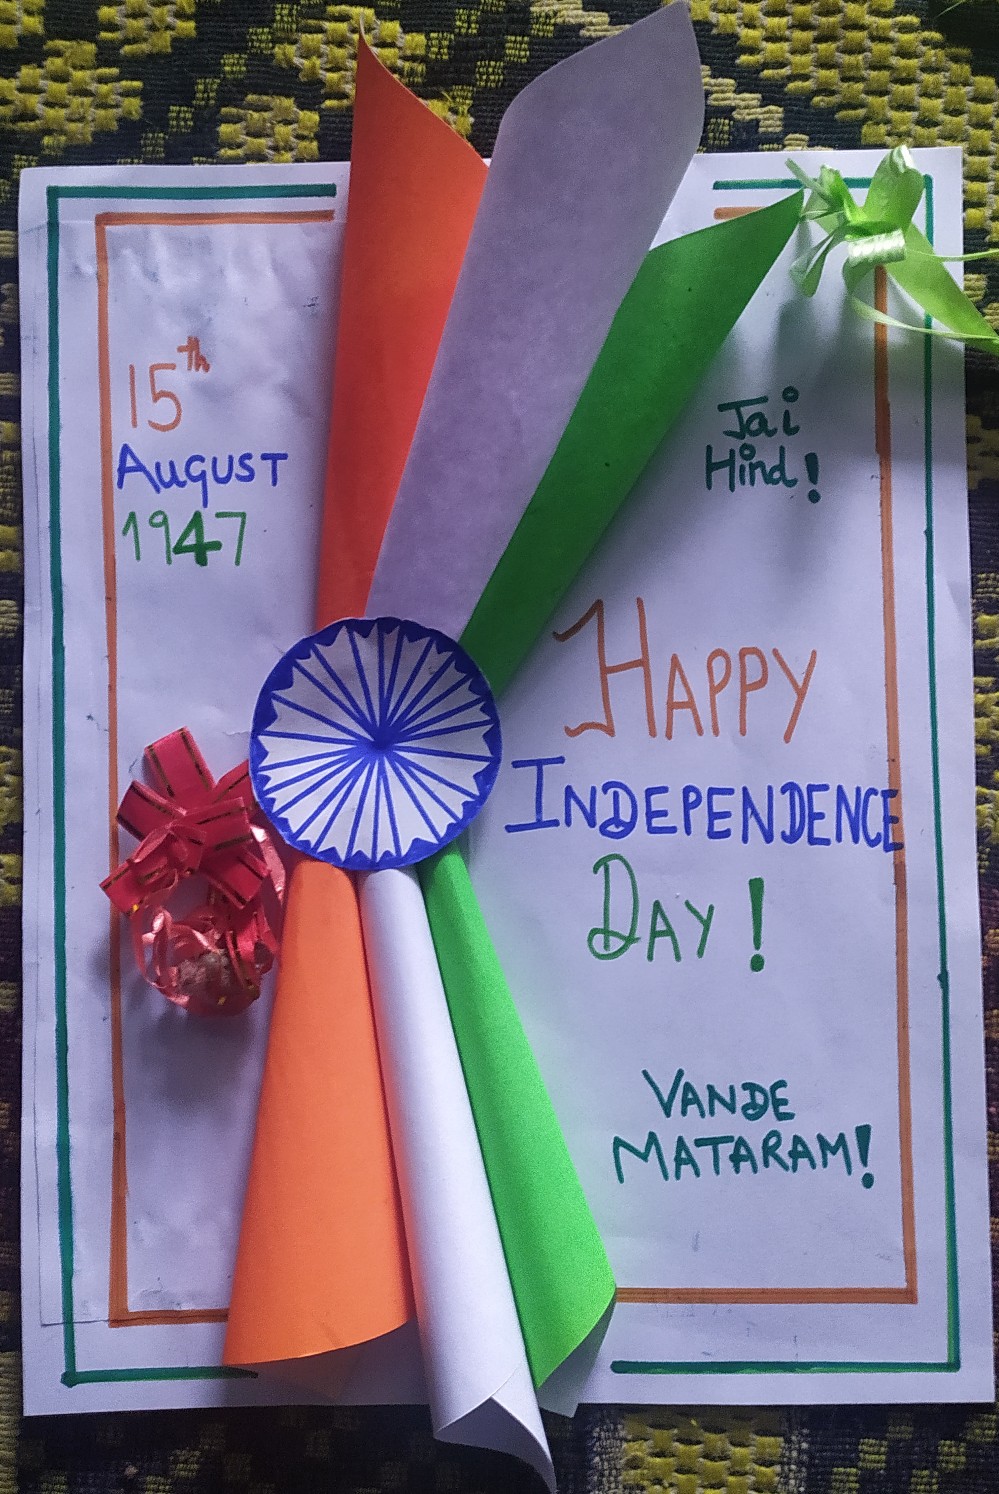 15th
August
1947
Jai
Hind!
Happy
Independence
Day!
Vande
Mataram!